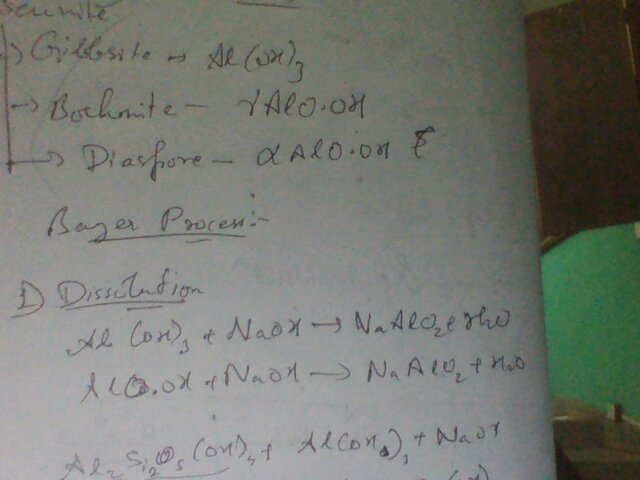 → Gibbsite → Al(OH)3
→ Bochmite - γAlO·OH
→ Diaspore - αAlO·OH
Bayer Process:-
1) Dissolution
Al(OH)3 + NaOH → NaAlO2 + H2O
AlO·OH + NaOH → NaAlO2 + H2O
Al2Si2O5(OH)4 + Al(OH)3 + NaOH